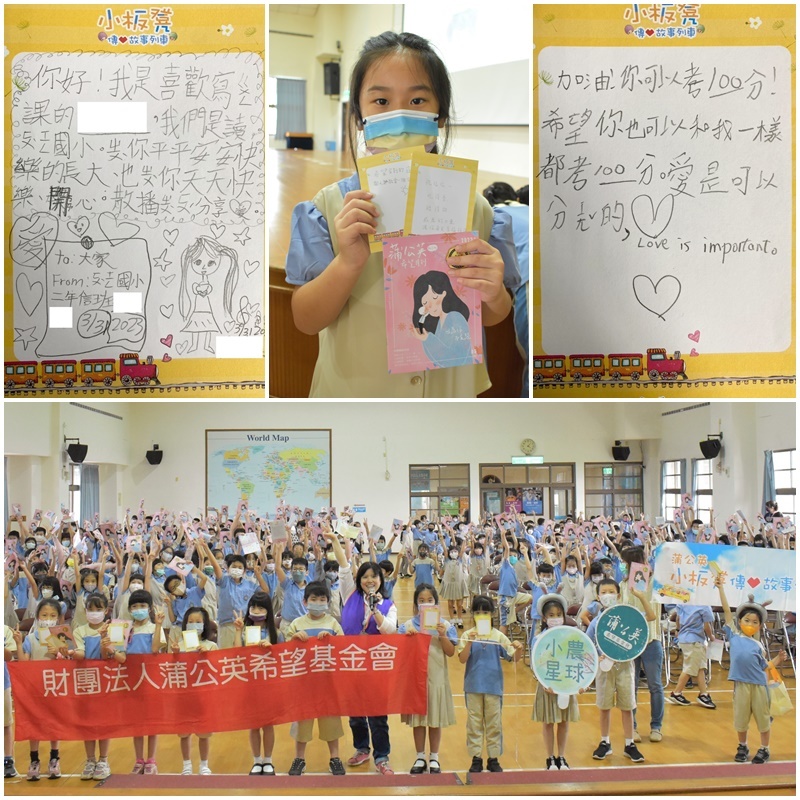 小板凳
傳❤故事列車
你好！我是喜歡寫
課的，我們是讀
國小。你平平安安快
樂的長大,也你天天快
樂、開心。散播分享
愛
To:大家
From:國小
二年信班
3/31 2023
蒲公英
小板凳
傳❤故事列車
加油!你可以考100分!
希望你也可以和我一樣
都考100分。愛是可以
分的,
Love is important。
World Map
蒲公英
小板凳傳❤故事
蒲公英
小農
星球
財團法人蒲公英希望基金會